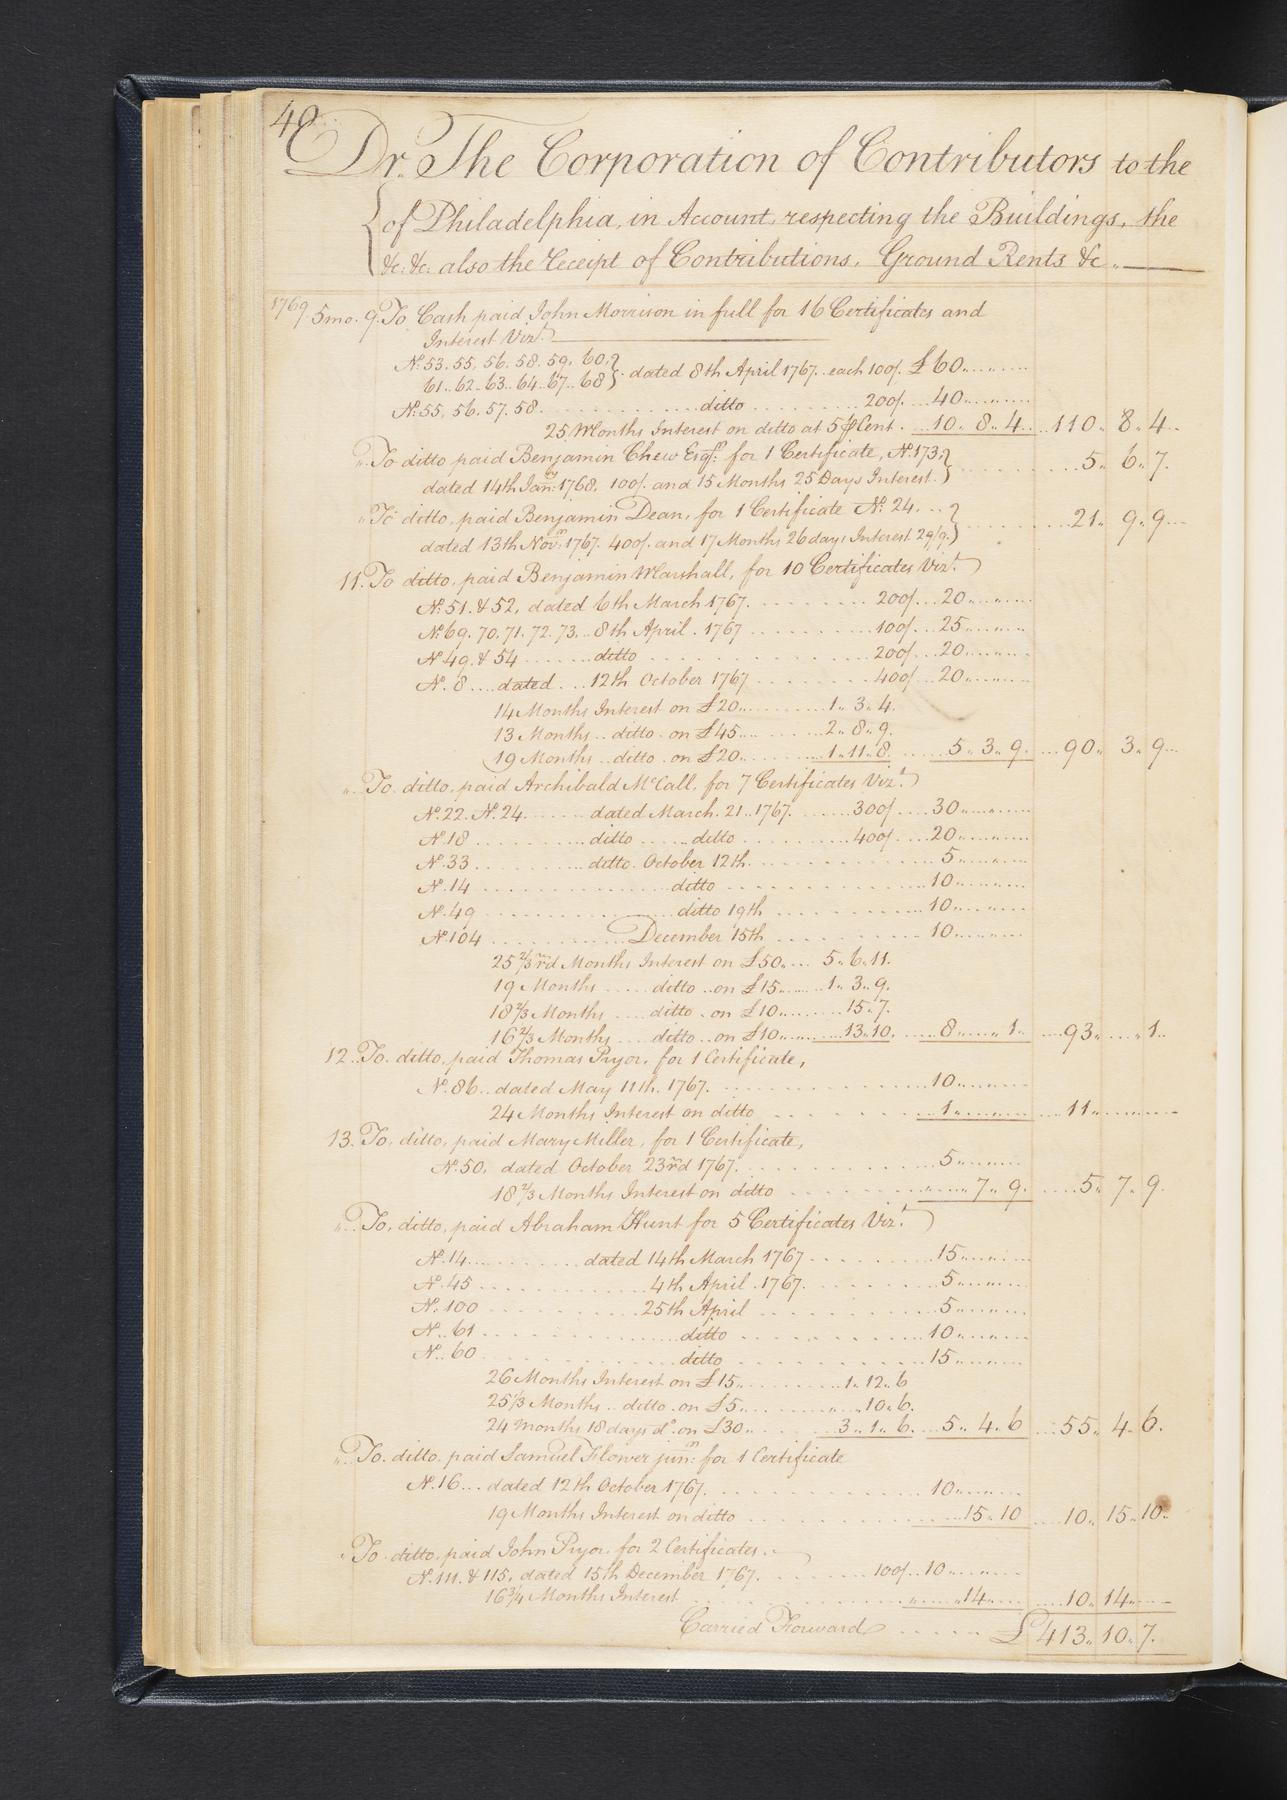 48
Dr. The Corporation of Contributors to the
of Philadelphia, in Account, respecting the Buildings, the
&c. &c. also the Receipt of Contributions, Ground Rents &c.
1769. 5mo. 9. To Cash paid John Morrison in full for 16 Certificates and
Interest Vizt.
No. 53. 55. 56. 58. 59. 60.
61.. 62.. 63.. 64.. 67.. 68 } dated 8th April 1767.. each 100/. £60
No. 55. 56. 57. 58. ditto 200/. 40
25 Months Interest on ditto at 5 ⅌ Cent. 10.. 8.. 4. 110.. 8.. 4.
" To ditto paid Benjamin Chew Esqr. for 1 Certificate, No. 173.
dated 14th Jany. 1768. 100/. and 15 Months 25 Days Interest. } 5.. 6.. 7.
" To ditto, paid Benjamin Dean, for 1 Certificate No. 24.
dated 13th Novm. 1767. 400/. and 17 Months 26 days Interest 29/9. } 21.. 9.. 9
11. To ditto, paid Benjamin Marshall, for 10 Certificates Vizt.
No. 51. & 52, dated 6th March 1767. 200/ 20
No. 69. 70. 71. 72. 73. 8th April. 1767 100/ 25
No. 49. & 54 ditto 200/ 20
No. 8 dated 12th October 1767 400/ 20
14 Months Interest on £20. 1.. 3.. 4.
13 Months ditto on £45 2.. 8.. 9.
19 Months ditto on £20. 1.. 11.. 8. 5.. 3.. 9. 90.. 3.. 9
" To ditto, paid Archibald McCall, for 7 Certificates Vizt.
No. 22. No. 24. dated March. 21.. 1767. 300/ 30
No. 18 ditto ditto 400/ 20
No. 33 ditto October 12th. 5
No. 14 ditto 10
No. 49 ditto 19th 10
No. 104 December 15th 10
25 2/3rd Months Interest on £50. 5.. 6.. 11.
19 Months ditto on £15 1.. 3.. 9.
18 2/3 Months ditto on £10 15.. 7.
16 2/3 Months ditto on £10 13.. 10. 8.. " 1.. 93.. " 1..
12. To ditto, paid Thomas Pryor, for 1 Certificate,
No. 86.. dated May 11th. 1767. 10
24 Months Interest on ditto 1 11
13. To, ditto, paid Mary Miller, for 1 Certificate,
No. 50, dated October 23rd 1767. 5
18 2/3 Months Interest on ditto 7.. 9. 5.. 7.. 9.
" To, ditto, paid Abraham Hunt for 5 Certificates Vizt.
No. 14 dated 14th March 1767 15
No. 45 4th April. 1767. 5
No. 100 25th April 5
No. 61 ditto 10
No. 60 ditto 15
26 Months Interest on £15 1.. 12.. 6
25 1/3 Months ditto on £5 10.. 6.
24 Months 18 days do. on £30 3.. 1.. 6. 5.. 4.. 6 55.. 4.. 6.
" To. ditto. paid Samuel Flower junr. for 1 Certificate
No. 16 dated 12th October 1767. 10
19 Months Interest on ditto 15.. 10 10.. 15.. 10.
" To ditto, paid John Pryor, for 2 Certificates.
No. 111. & 115, dated 15th December 1767. 100/. 10
16 3/4 Months Interest 14 10.. 14
Carried Forward £413.. 10.. 7.